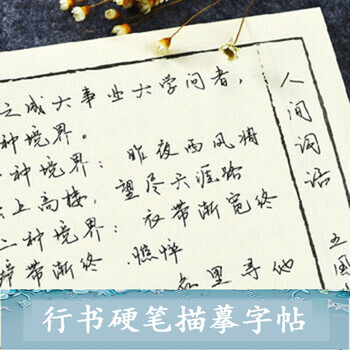 之成大事业大学问者，
种境界。
种境界：昨夜西风将
上高楼，望尽天涯路
二种境界：衣带渐宽终
带渐终 憔悴
里寻他
人间词话
行书硬笔描摹字帖